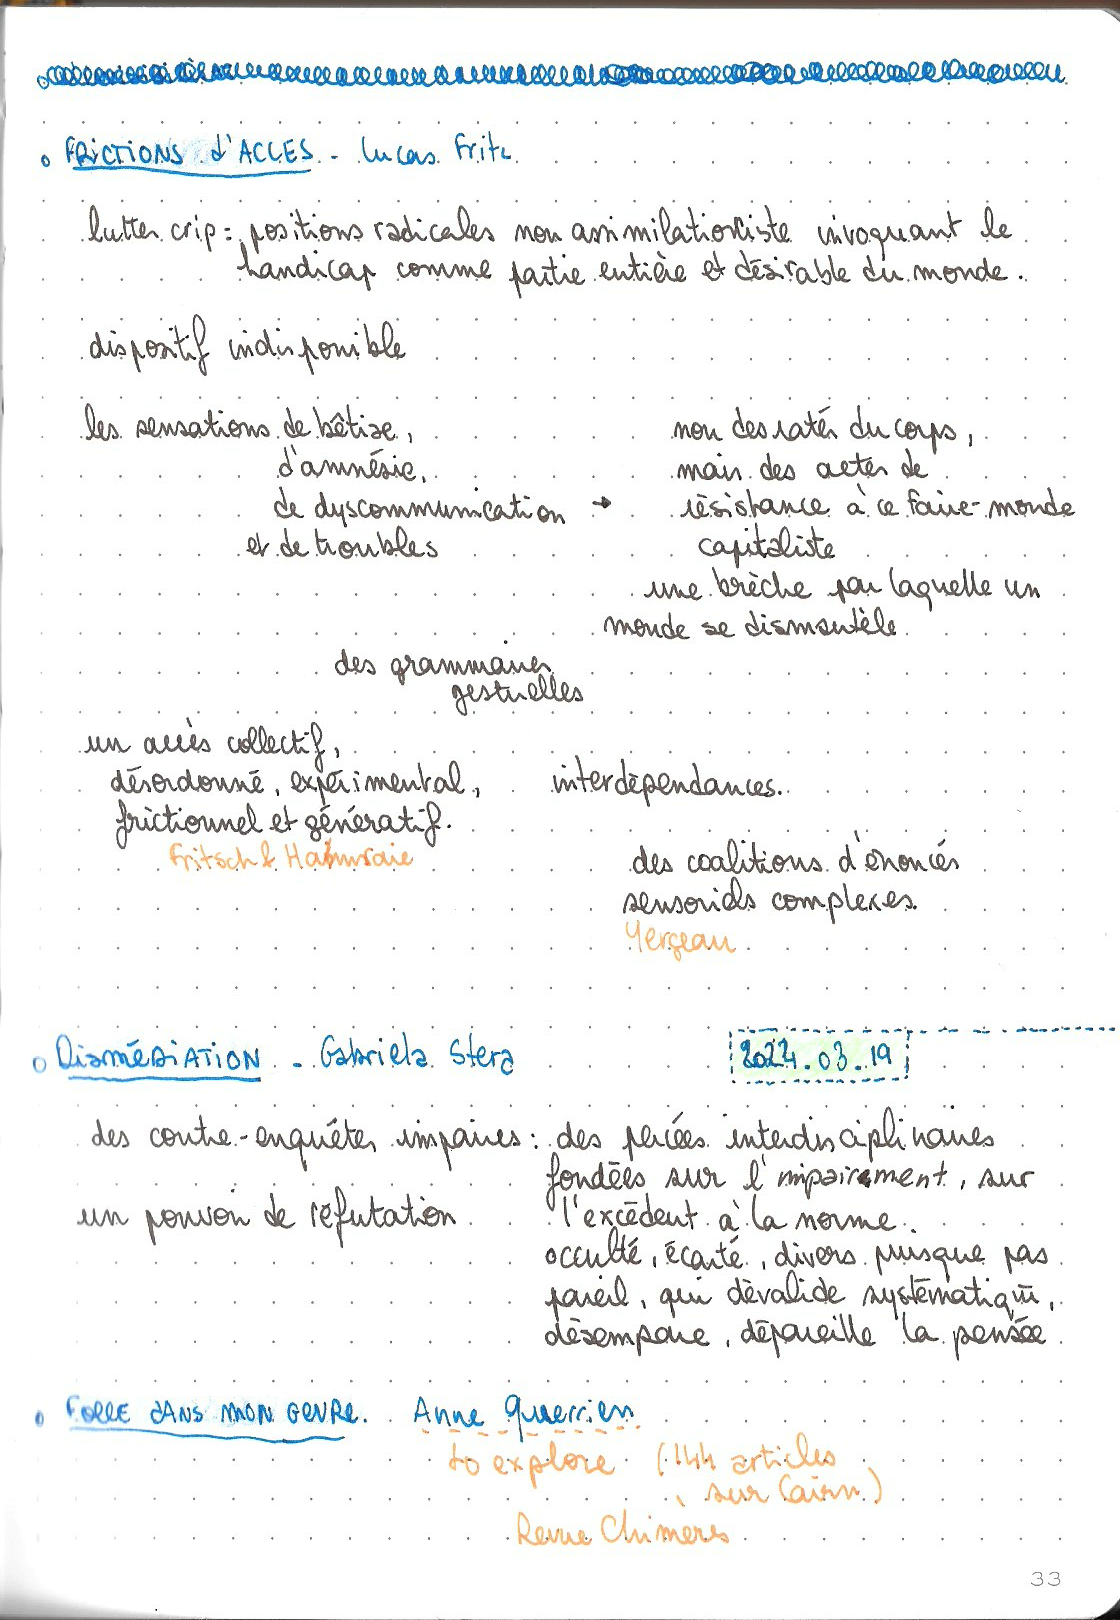 FRICTIONS d'ACCES - Lucas Fritz
luttes crip : positions radicales non assimilationniste invoquant le
handicap comme partie entière et désirable du monde.
dispositif indisponible
les sensations de bêtise,
d'amnésie,
de dyscommunication →
et de troubles
non des ratés du corps,
mais des actes de
résistance à ce faire-monde
capitaliste
une brèche par laquelle un
monde se dismantèle.
des grammaires
gestuelles
un accès collectif,
désordonné, expérimental,
frictionnel et génératif.
Fritsch & Hamraie
interdépendances.
des coalitions d'énoncés
sensoriels complexes.
Yergeau
DisméDiATION - Gabriela Stera
2024.03.19
des contre-enquêtes impaires :
un pouvoir de réfutation
des percées interdisciplinaires
fondées sur l'impairment, sur
l'excédent à la norme.
occulté, écarté, divers puisque pas
pareil, qui dévalide systématiqu̅,
désempare, dépareille la pensée
FOLLE DANS MON GENRE. Anne Querrien
to explore (144 articles
sur Cairn)
Revue Chimères
33